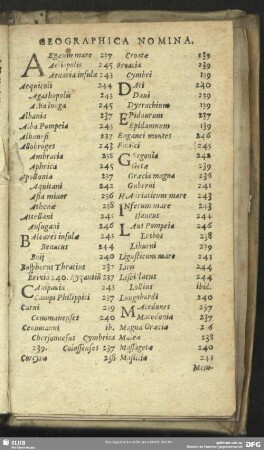 GEOGRAPHICA NOMINA.
AEgæum mare 239
Acropolis 245
Ænaria insula 243
Aequicoli 244
Agathopolis 243
Alba longa 245
Albania 237
Alba Pompeia 245
Albongi 237
Allobroges 243
Ambracia 238
Aphrica 245
Apollonia 237
Aquitani 242
Asia minor 236
Athenæ 238
Attellani 245
Ausugani 246
Baleares insulæ 243
Benacus 244
Boij 240
Bosphorus Thracius 237
Brixia 240. Byzantiũ 237
Campania 243
Campi Philippici 237
Carni 239
Cenomanenses 240
Cenomanni ib.
Chersonnesus Cymbrica
239. Colossenses 237
Corcyra 238
Crostæ 239
Croacia 239
Cymbri 239
DAci 240
Dani 239
Dyrrachium 239
EPidaurum 237
Epidamnum 239
Euganei montes 246
Fæsici 245
GErgonia 242
Gotæ 239
Græcia magna 236
Guberni 241
HAdriaticum mare 243
INferum mare 243
Isaurus 244
LAus Pompeia 246
Lesbos 238
Liburni 239
Ligusticum mare 241
Livij 244
Lissei locus 244
Lollius ibid.
Longobardi 240
MAcedones 237
Macedonia 237
Magna Græcia 236
Malea 238
Massagetæ 240
Massilia 243
Mem-
SLUB